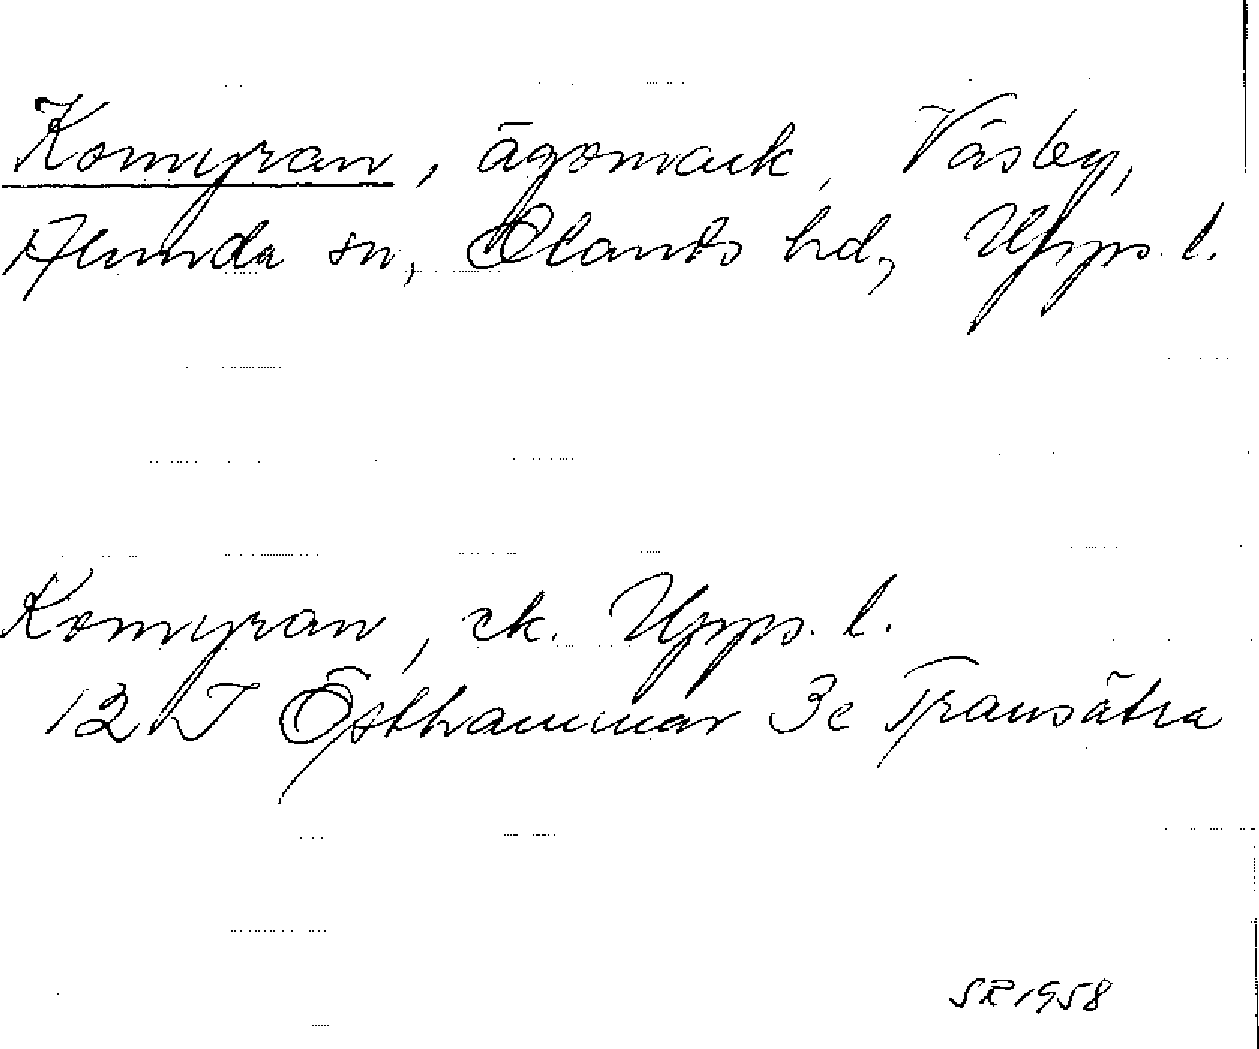 Komyran, ägomark, Väsby,
Alunda sn, Olands hd, Upps. l.
Komyran, ek. Upps. l.
12 I Östhammar 3c Transätra
SR 1958